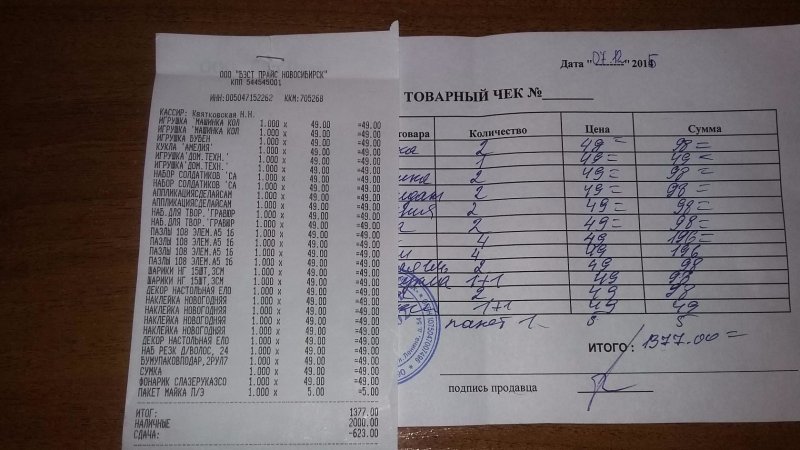 ООО "БЭСТ ПРАЙС НОВОСИБИРСК"
КПП 544545001
ИНН:005047152262 ККМ:705268
КАССИР: Квятковская Н.Н.
ИГРУШКА 'МАШИНКА КОЛ 1.000 x 49.00 =49.00
ИГРУШКА 'МАШИНКА КОЛ 1.000 x 49.00 =49.00
ИГРУШКА БУБЕН 1.000 x 49.00 =49.00
КУКЛА 'АМЕЛИЯ' 1.000 x 49.00 =49.00
ИГРУШКА'ДОМ.ТЕХН.' 1.000 x 49.00 =49.00
ИГРУШКА'ДОМ.ТЕХН.' 1.000 x 49.00 =49.00
НАБОР СОЛДАТИКОВ 'СА 1.000 x 49.00 =49.00
НАБОР СОЛДАТИКОВ 'СА 1.000 x 49.00 =49.00
АППЛИКАЦИЯСДЕЛАЙСАМ 1.000 x 49.00 =49.00
АППЛИКАЦИЯСДЕЛАЙСАМ 1.000 x 49.00 =49.00
НАБ.ДЛЯ ТВОР.'ГРАВЮР 1.000 x 49.00 =49.00
НАБ.ДЛЯ ТВОР.'ГРАВЮР 1.000 x 49.00 =49.00
ПАЗЛЫ 108 ЭЛЕМ.А5 16 1.000 x 49.00 =49.00
ПАЗЛЫ 108 ЭЛЕМ.А5 16 1.000 x 49.00 =49.00
ПАЗЛЫ 108 ЭЛЕМ.А5 16 1.000 x 49.00 =49.00
ПАЗЛЫ 108 ЭЛЕМ.А5 16 1.000 x 49.00 =49.00
ШАРИКИ НГ 15ШТ,3СМ 1.000 x 49.00 =49.00
ШАРИКИ НГ 15ШТ,3СМ 1.000 x 49.00 =49.00
ДЕКОР НАСТОЛЬНАЯ ЕЛО 1.000 x 49.00 =49.00
НАКЛЕЙКА НОВОГОДНЯЯ 1.000 x 49.00 =49.00
НАКЛЕЙКА НОВОГОДНЯЯ 1.000 x 49.00 =49.00
НАКЛЕЙКА НОВОГОДНЯЯ 1.000 x 49.00 =49.00
НАКЛЕЙКА НОВОГОДНЯЯ 1.000 x 49.00 =49.00
ДЕКОР НАСТОЛЬНАЯ ЕЛО 1.000 x 49.00 =49.00
НАБ РЕЗК Д/ВОЛОС, 24 1.000 x 49.00 =49.00
БУМУПАКОВПОДАР,2РУЛ7 1.000 x 49.00 =49.00
СУМКА 1.000 x 49.00 =49.00
ФОНАРИК СЛАЗЕРУКАЗСО 1.000 x 49.00 =49.00
ПАКЕТ МАЙКА П/Э 1.000 x 5.00 =5.00
ИТОГ: 1377.00
НАЛИЧНЫЕ 2000.00
СДАЧА: -623.00
Дата "07.12" 2015
ТОВАРНЫЙ ЧЕК №
товара Количество Цена Сумма
2 49= 98=
1 49= 49=
2 49= 98=
2 49= 98=
2 49= 98=
2 49= 98=
4 49 196=
4 49 196
2 49 98
1+1 49 98
2 49 98
1+1 49 49
пакет 1 5 5
ИТОГО : 1377.00=
подпись продавца